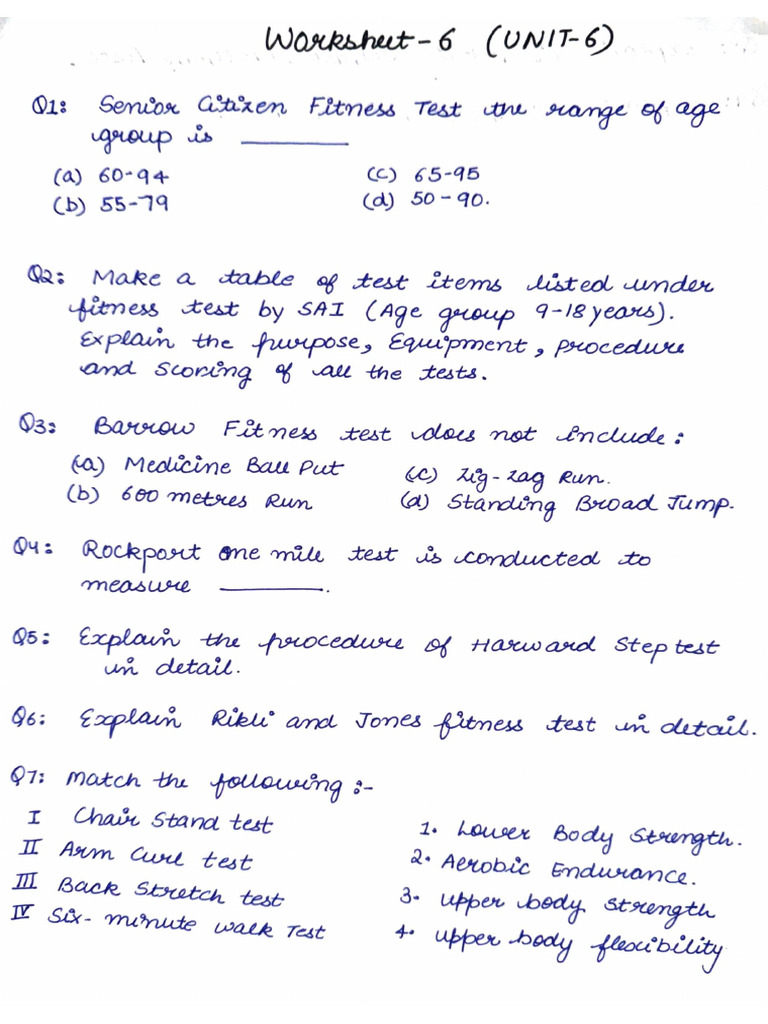 Worksheet-6 (UNIT-6)
Q1: Senior Citizen Fitness Test the range of age
group is ________
(a) 60-94 (c) 65-95
(b) 55-79 (d) 50-90.
Q2: Make a table of test items listed under
fitness test by SAI (Age group 9-18 years).
Explain the purpose, Equipment, procedure
and scoring of all the tests.
Q3: Barrow Fitness test does not include:
(a) Medicine Ball Put (c) Zig-Zag Run.
(b) 600 metres Run (d) Standing Broad Jump.
Q4: Rockport one mile test is conducted to
measure ________.
Q5: Explain the procedure of Harward Step test
in detail.
Q6: Explain Rikli and Jones fitness test in detail.
Q7: Match the following :-
I Chair Stand test 1. Lower Body Strength.
II Arm Curl test 2. Aerobic Endurance.
III Back Stretch test 3. Upper body strength
IV Six-minute walk Test 4. Upper body flexibility